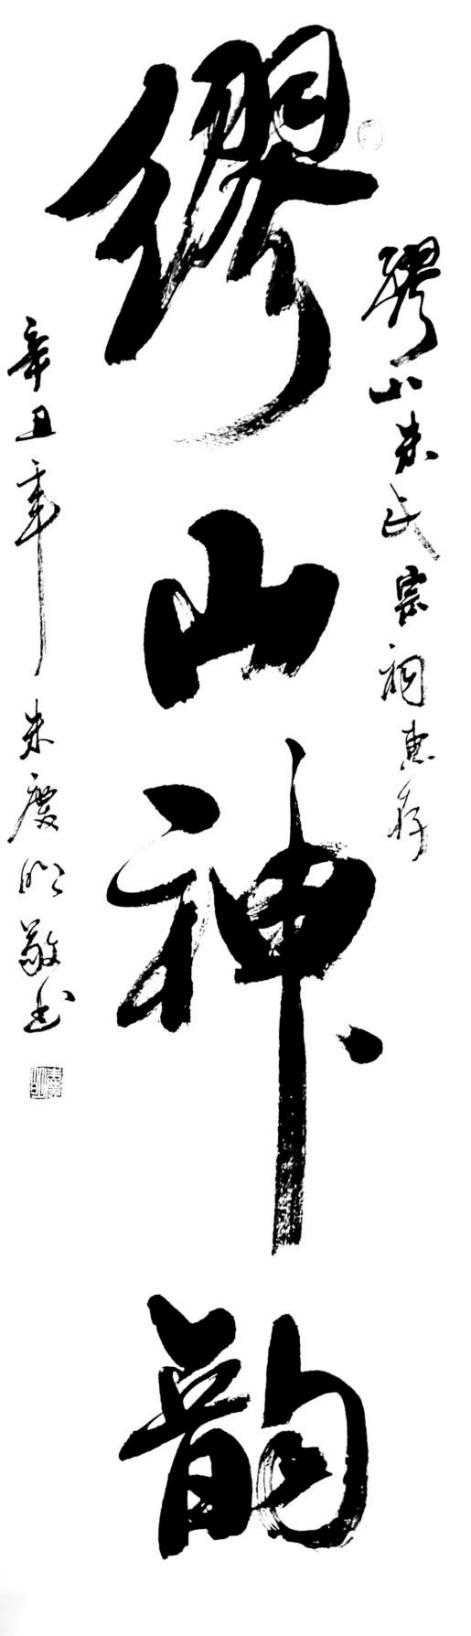 缪山朱氏宗祠惠存
缪山神韵
辛丑年朱庆明敬书